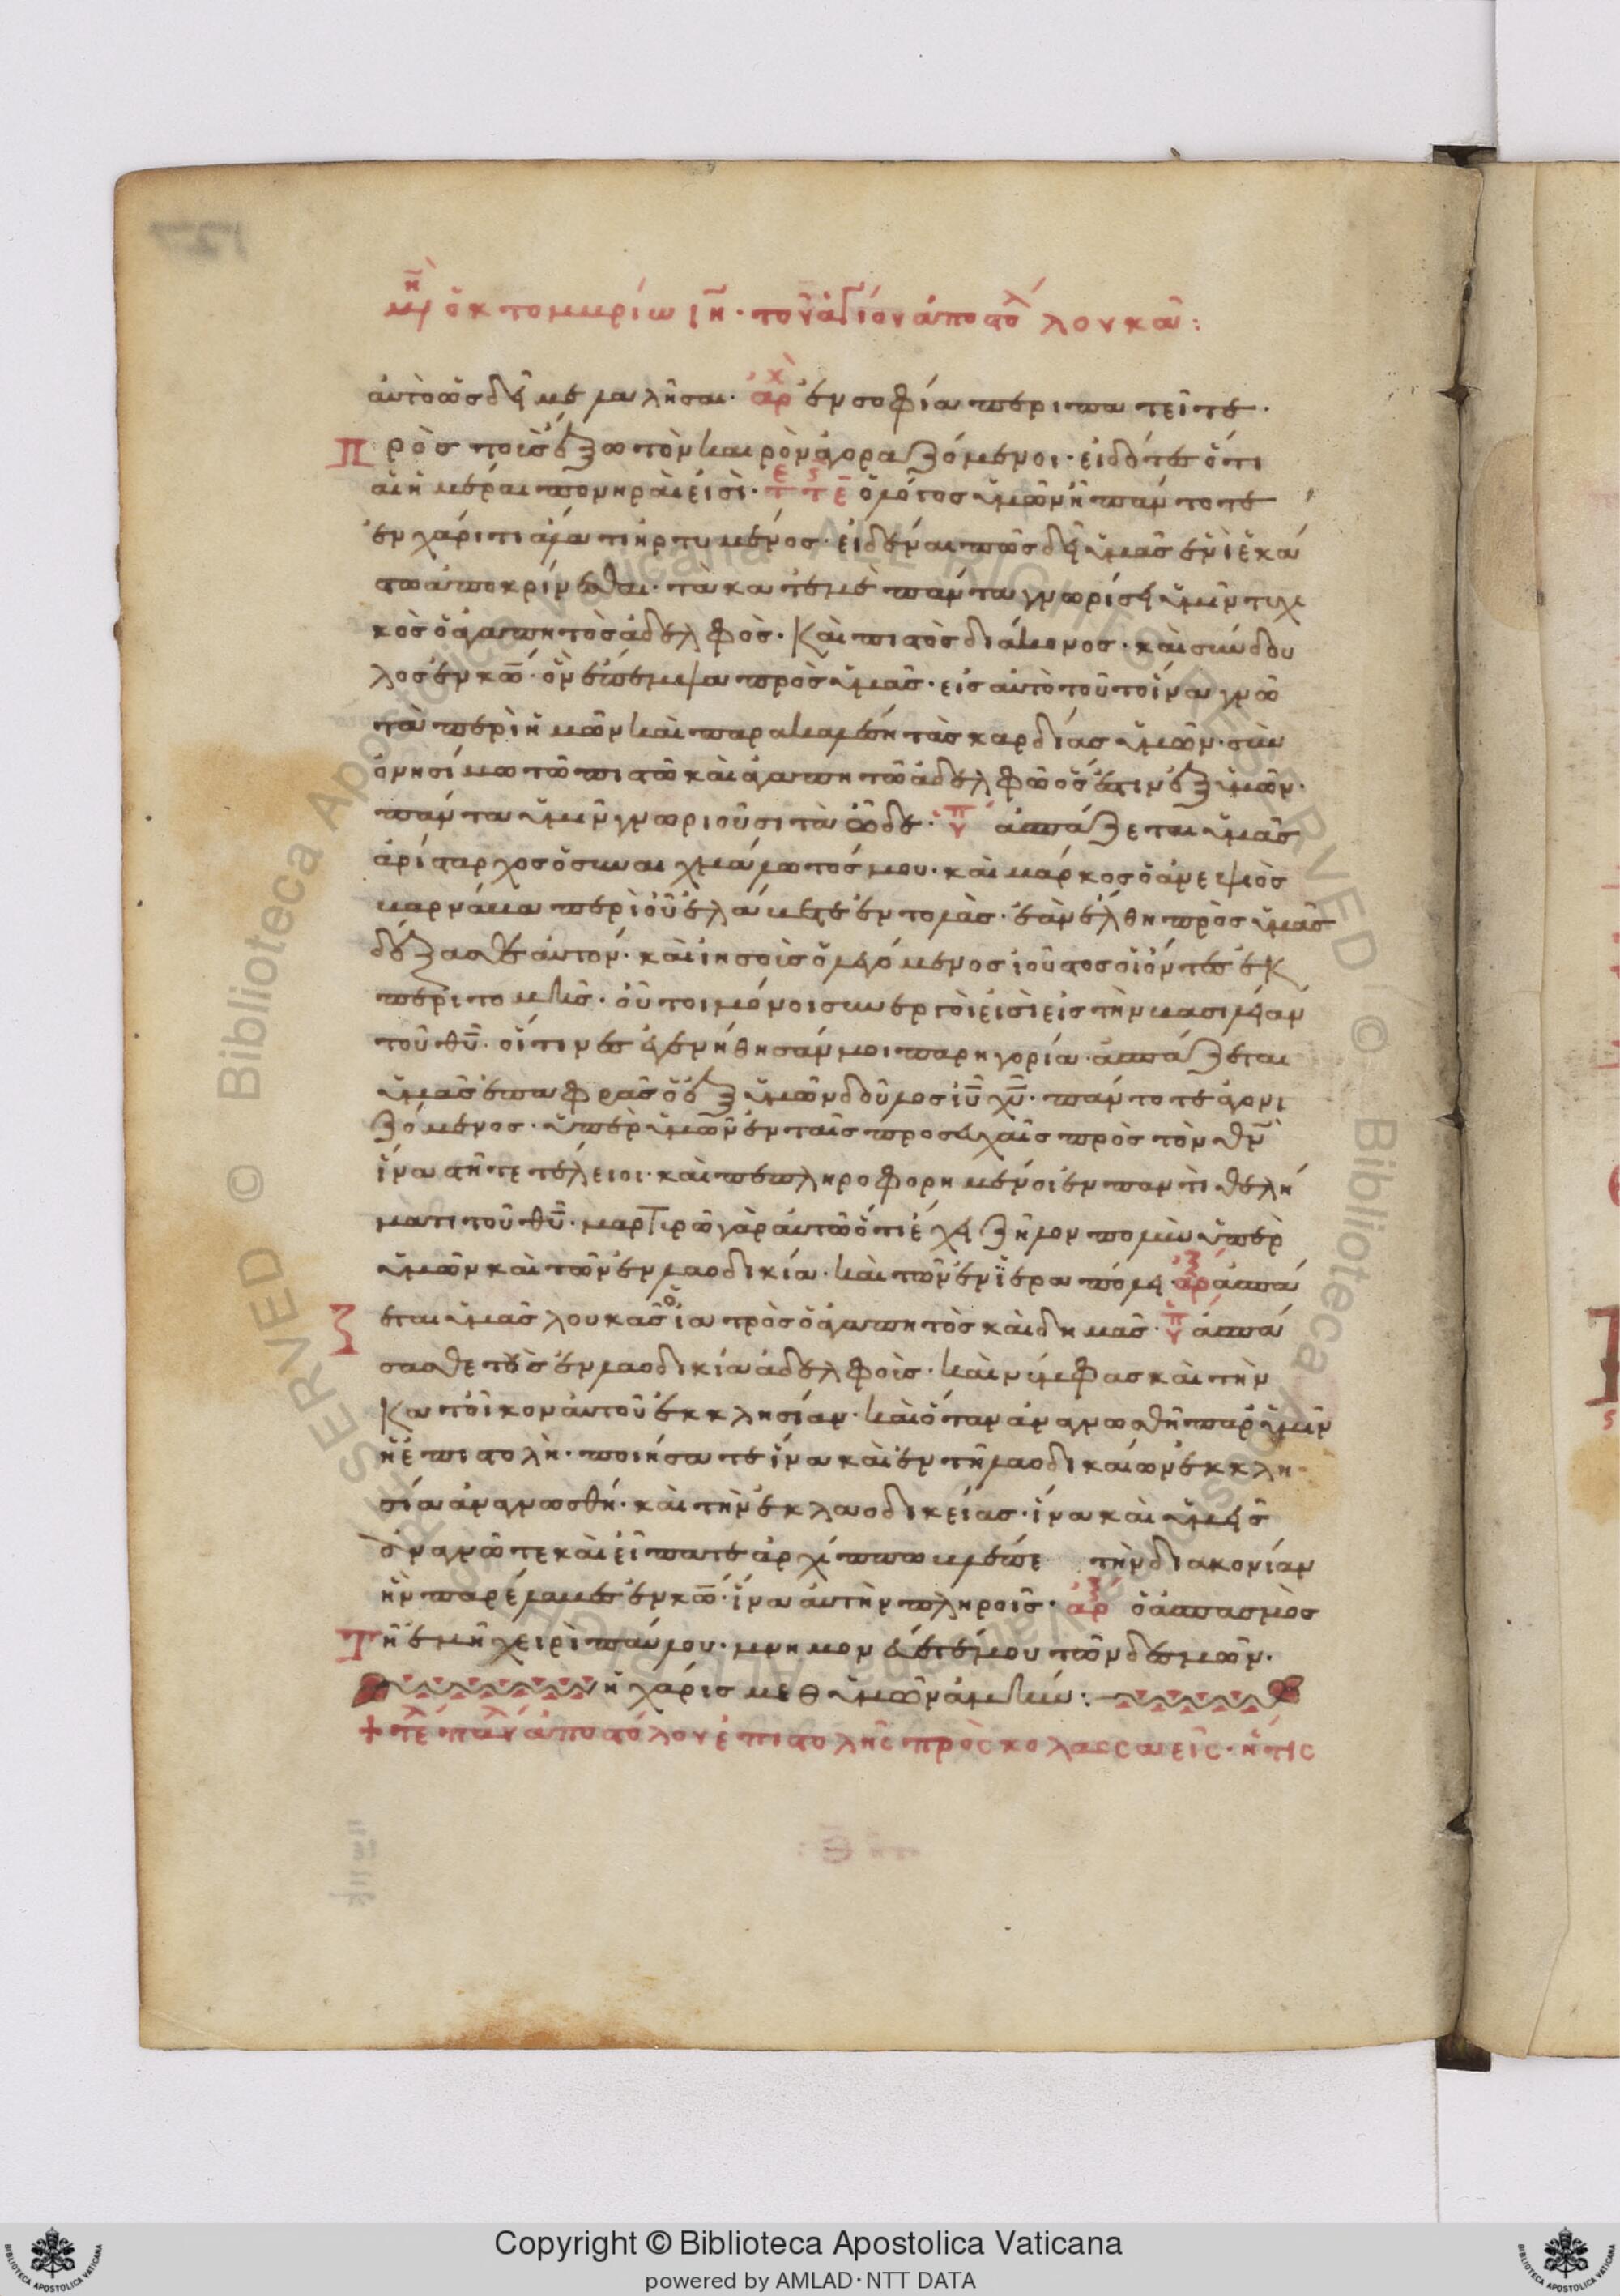 μη ὀκτομμρίω ιη· τοῦ ἁγίου ἀποστολ λουκᾶ:
αὐτὸ ὡς δεῖ με λαλῆσαι· ἀρχ ἐν σοφία περιπατεῖτε·
Πρὸς τοὺς ἔξω τὸν καιρὸν ἀγοραζόμενοι· εἰδότες ὅτι
αἱ ἡμέραι πονηραὶ εἰσὶ· ὁ λόγος ὑμῶν ἢ πάντοτε
ἐν χάριτι ἅλατι ἠρτυμένος· εἰδέναι πῶς δεῖ ὑμᾶς ἑνὶ ἑκά
στω ἀποκρίνεσθαι· τὰ κατεμὲ πάντα γνωρίσει ὑμῖν τυχι
κὸς ὁ ἀγαπητὸς ἀδελφὸς· καὶ πιστὸς διάκονος· καὶ σύνδου
λος ἐν κω· ὃν ἔπεμψα πρὸς ὑμᾶς· εἰς αὐτὸ τοῦτο ἵνα γνῶ
τὰ περὶ ἡμῶν καὶ παρακαλέση τὰς καρδίας ὑμῶν· σὺν
ὀνησίμω τῶ πιστῶ καὶ ἀγαπητῶ ἀδελφῶ ὅς ἐστιν ἐξ ὑμῶν·
πάντα ὑμῖν γνωριοῦσι τὰ ὧδε· ἀσπάζεται ὑμᾶς
ἀρίσταρχος ὁ συναιχμάλωτός μου· καὶ μάρκος ὁ ἀνεψιὸς
βαρνάβα περὶ οὗ ἐλάβετε ἐντολὰς· ἐὰν ἔλθη πρὸς ὑμᾶς
δέξασθε αὐτόν· καὶ ἰησοῦς ὁ λεγόμενος ἰοῦστος οἱ ὄντες ἐκ
περιτομῆς· οὗτοι μόνοι συνεργοὶ εἰσὶ εἰς τὴν βασιλείαν
τοῦ θυ· οἵτινες ἐγενήθησάν μοι παρηγορία· ἀσπάζεται
ὑμᾶς ἐπαφρᾶς ὁ ἐξ ὑμῶν δοῦλος ιυ χυ· πάντοτε ἀγωνι
ζόμενος· ὑπὲρ ὑμῶν ἐν ταῖς προσευχαῖς πρὸς τὸν θν
ἵνα στῆτε τέλειοι· καὶ πεπληροφορημένοι ἐν παντὶ θελή
ματι τοῦ θυ· μαρτυρῶ γὰρ αὐτῶ ὅτι ἔχει ζῆλον πολὺν ὑπὲρ
ὑμῶν καὶ τῶν ἐν λαοδικία· καὶ τῶν ἐν ἱεραπόλει· ἀρξ ἀσπά
ζεται ὑμᾶς λουκᾶς ὁ ἰατρὸς ὁ ἀγαπητὸς καὶ δημᾶς· ἀσπά
σασθε τοὺς ἐν λαοδικία ἀδελφοὺς· καὶ νύμφας καὶ τὴν
κατοῖκον αὐτοῦ ἐκκλησίαν· καὶ ὅταν ἀναγνωσθῆ παρ ὑμῖν
ἡ ἐπιστολὴ· ποιήσατε ἵνα καὶ ἐν τῆ λαοδικαίων ἐκκλη
σία ἀναγνωσθῆ· καὶ τὴν ἐκ λαοδικείας· ἵνα καὶ ὑμεῖς
ἀναγνῶτε καὶ εἴπατε ἀρχίππω βλέπε τὴν διακονίαν
ἣν παρέλαβες ἐν κω· ἵνα αὐτὴν πληροῖς· ἀρξ ὁ ἀσπασμὸς
Τῆ ἐμῆ χειρὶ παύλου· μνημονεύετέ μου τῶν δεσμῶν·
ἡ χάρις μεθ ὑμῶν ἀμήν:
+ τε παυλ ἀποστόλου ἐπιστολῆς πρὸς κολασσαεῖς· ἥτις